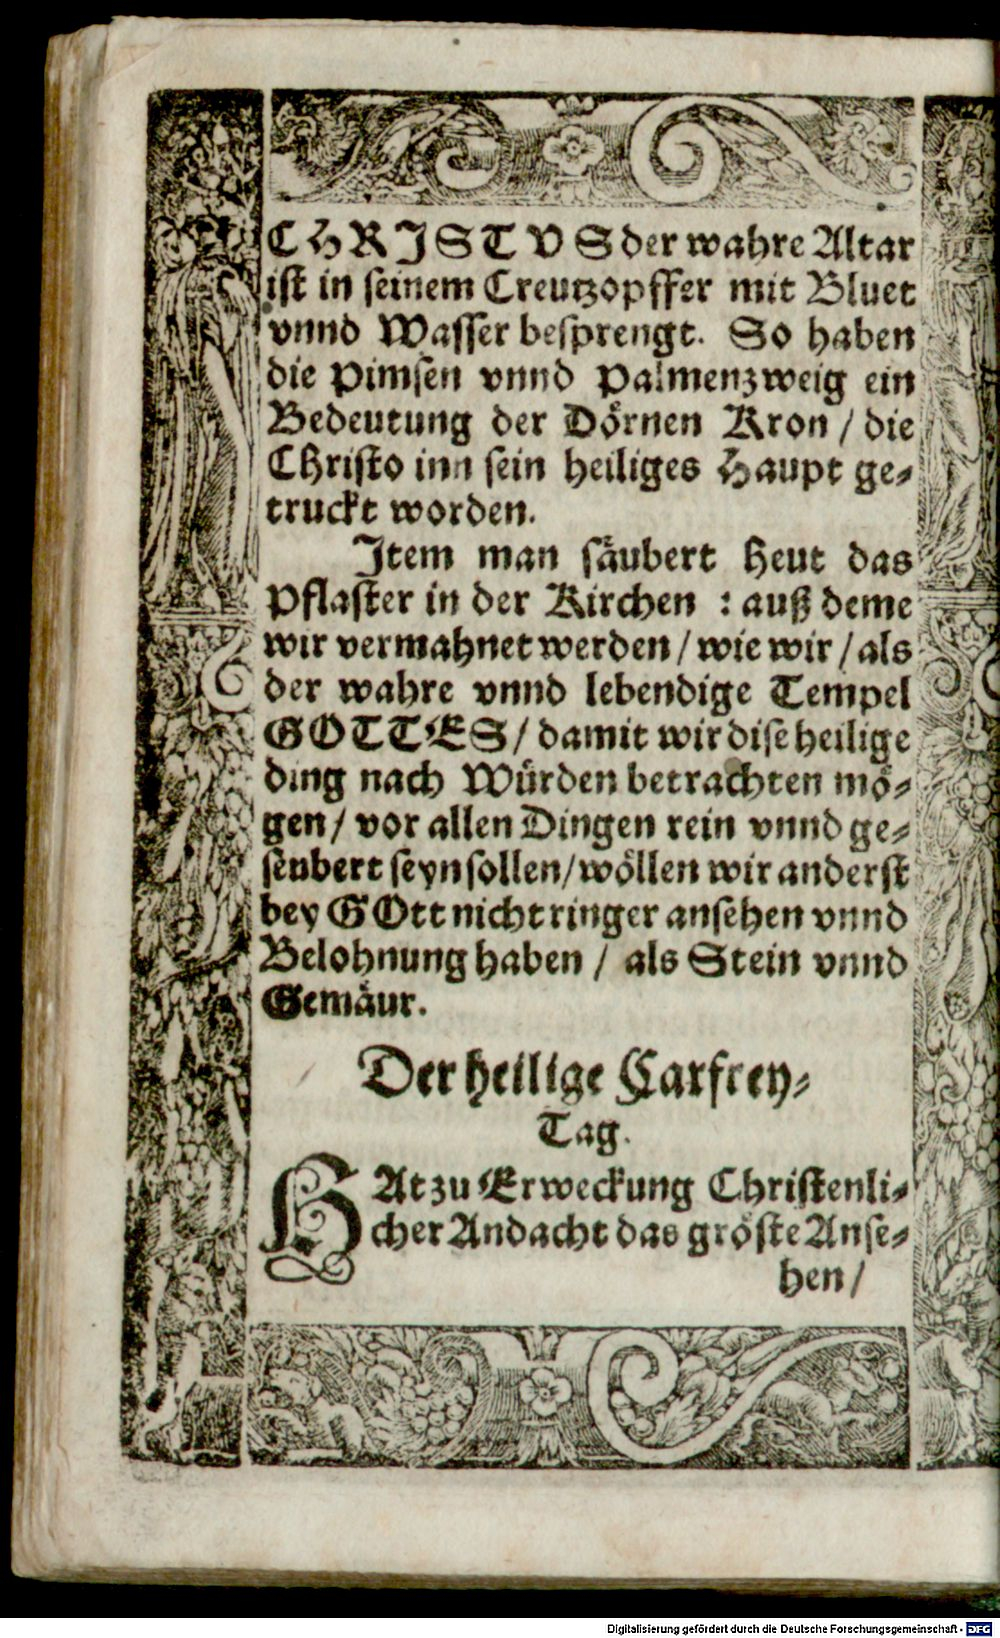 CHRISTVS der wahre Altar
ist in seinem Creutzopffer mit Bluet
vnnd Wasser besprengt. So haben
die Pimsen vnnd Palmenzweig ein
Bedeutung der Dörnen Kron / die
Christo inn sein heiliges Haupt ge-
truckt worden.
Item man säubert heut das
Pflaster in der Kirchen : auß deme
wir vermahnet werden / wie wir / als
der wahre vnnd lebendige Tempel
GOTTES / damit wir dise heilige
ding nach Würden betrachten mö-
gen / vor allen Dingen rein vnnd ge-
seubert seyn sollen / wöllen wir anderst
bey GOtt nicht ringer ansehen vnnd
Belohnung haben / als Stein vnnd
Gemäur.
Der heilige Carfrey-
Tag.
HAt zu Erweckung Christenli-
cher Andacht das gröste Anse-
hen /
Digitalisierung gefördert durch die Deutsche Forschungsgemeinschaft - DFG